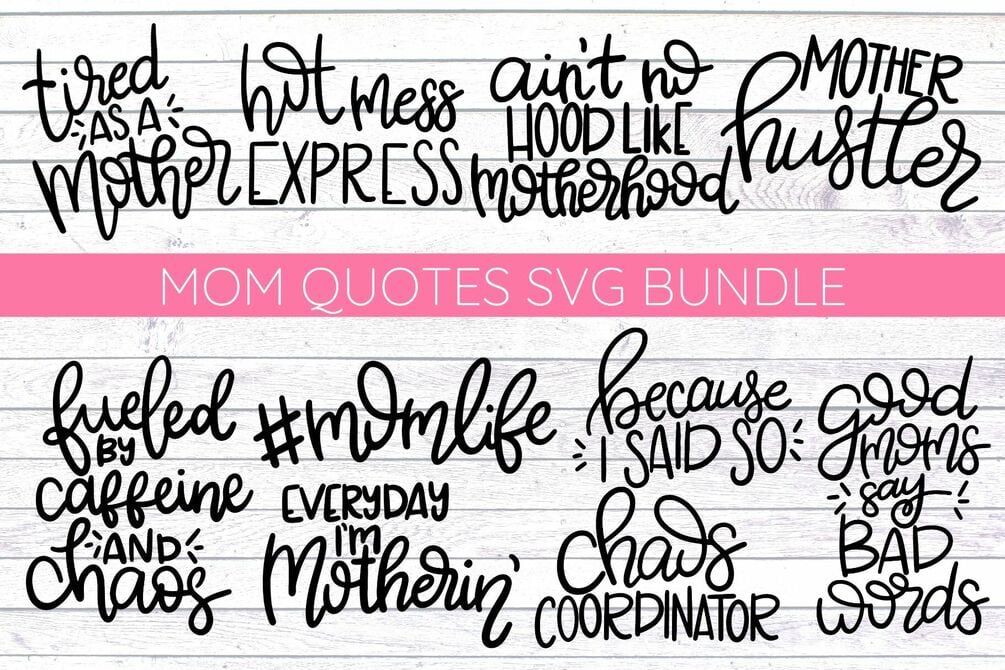 tired
AS A
Mother
hot mess
EXPRESS
ain't no
HOOD LIKE
motherhood
MOTHER
hustler
MOM QUOTES SVG BUNDLE
fueled
BY
caffeine
AND
chaos
#momlife
EVERYDAY
I'm
Motherin'
because
I SAID SO
chaos
COORDINATOR
good
moms
say
BAD
words